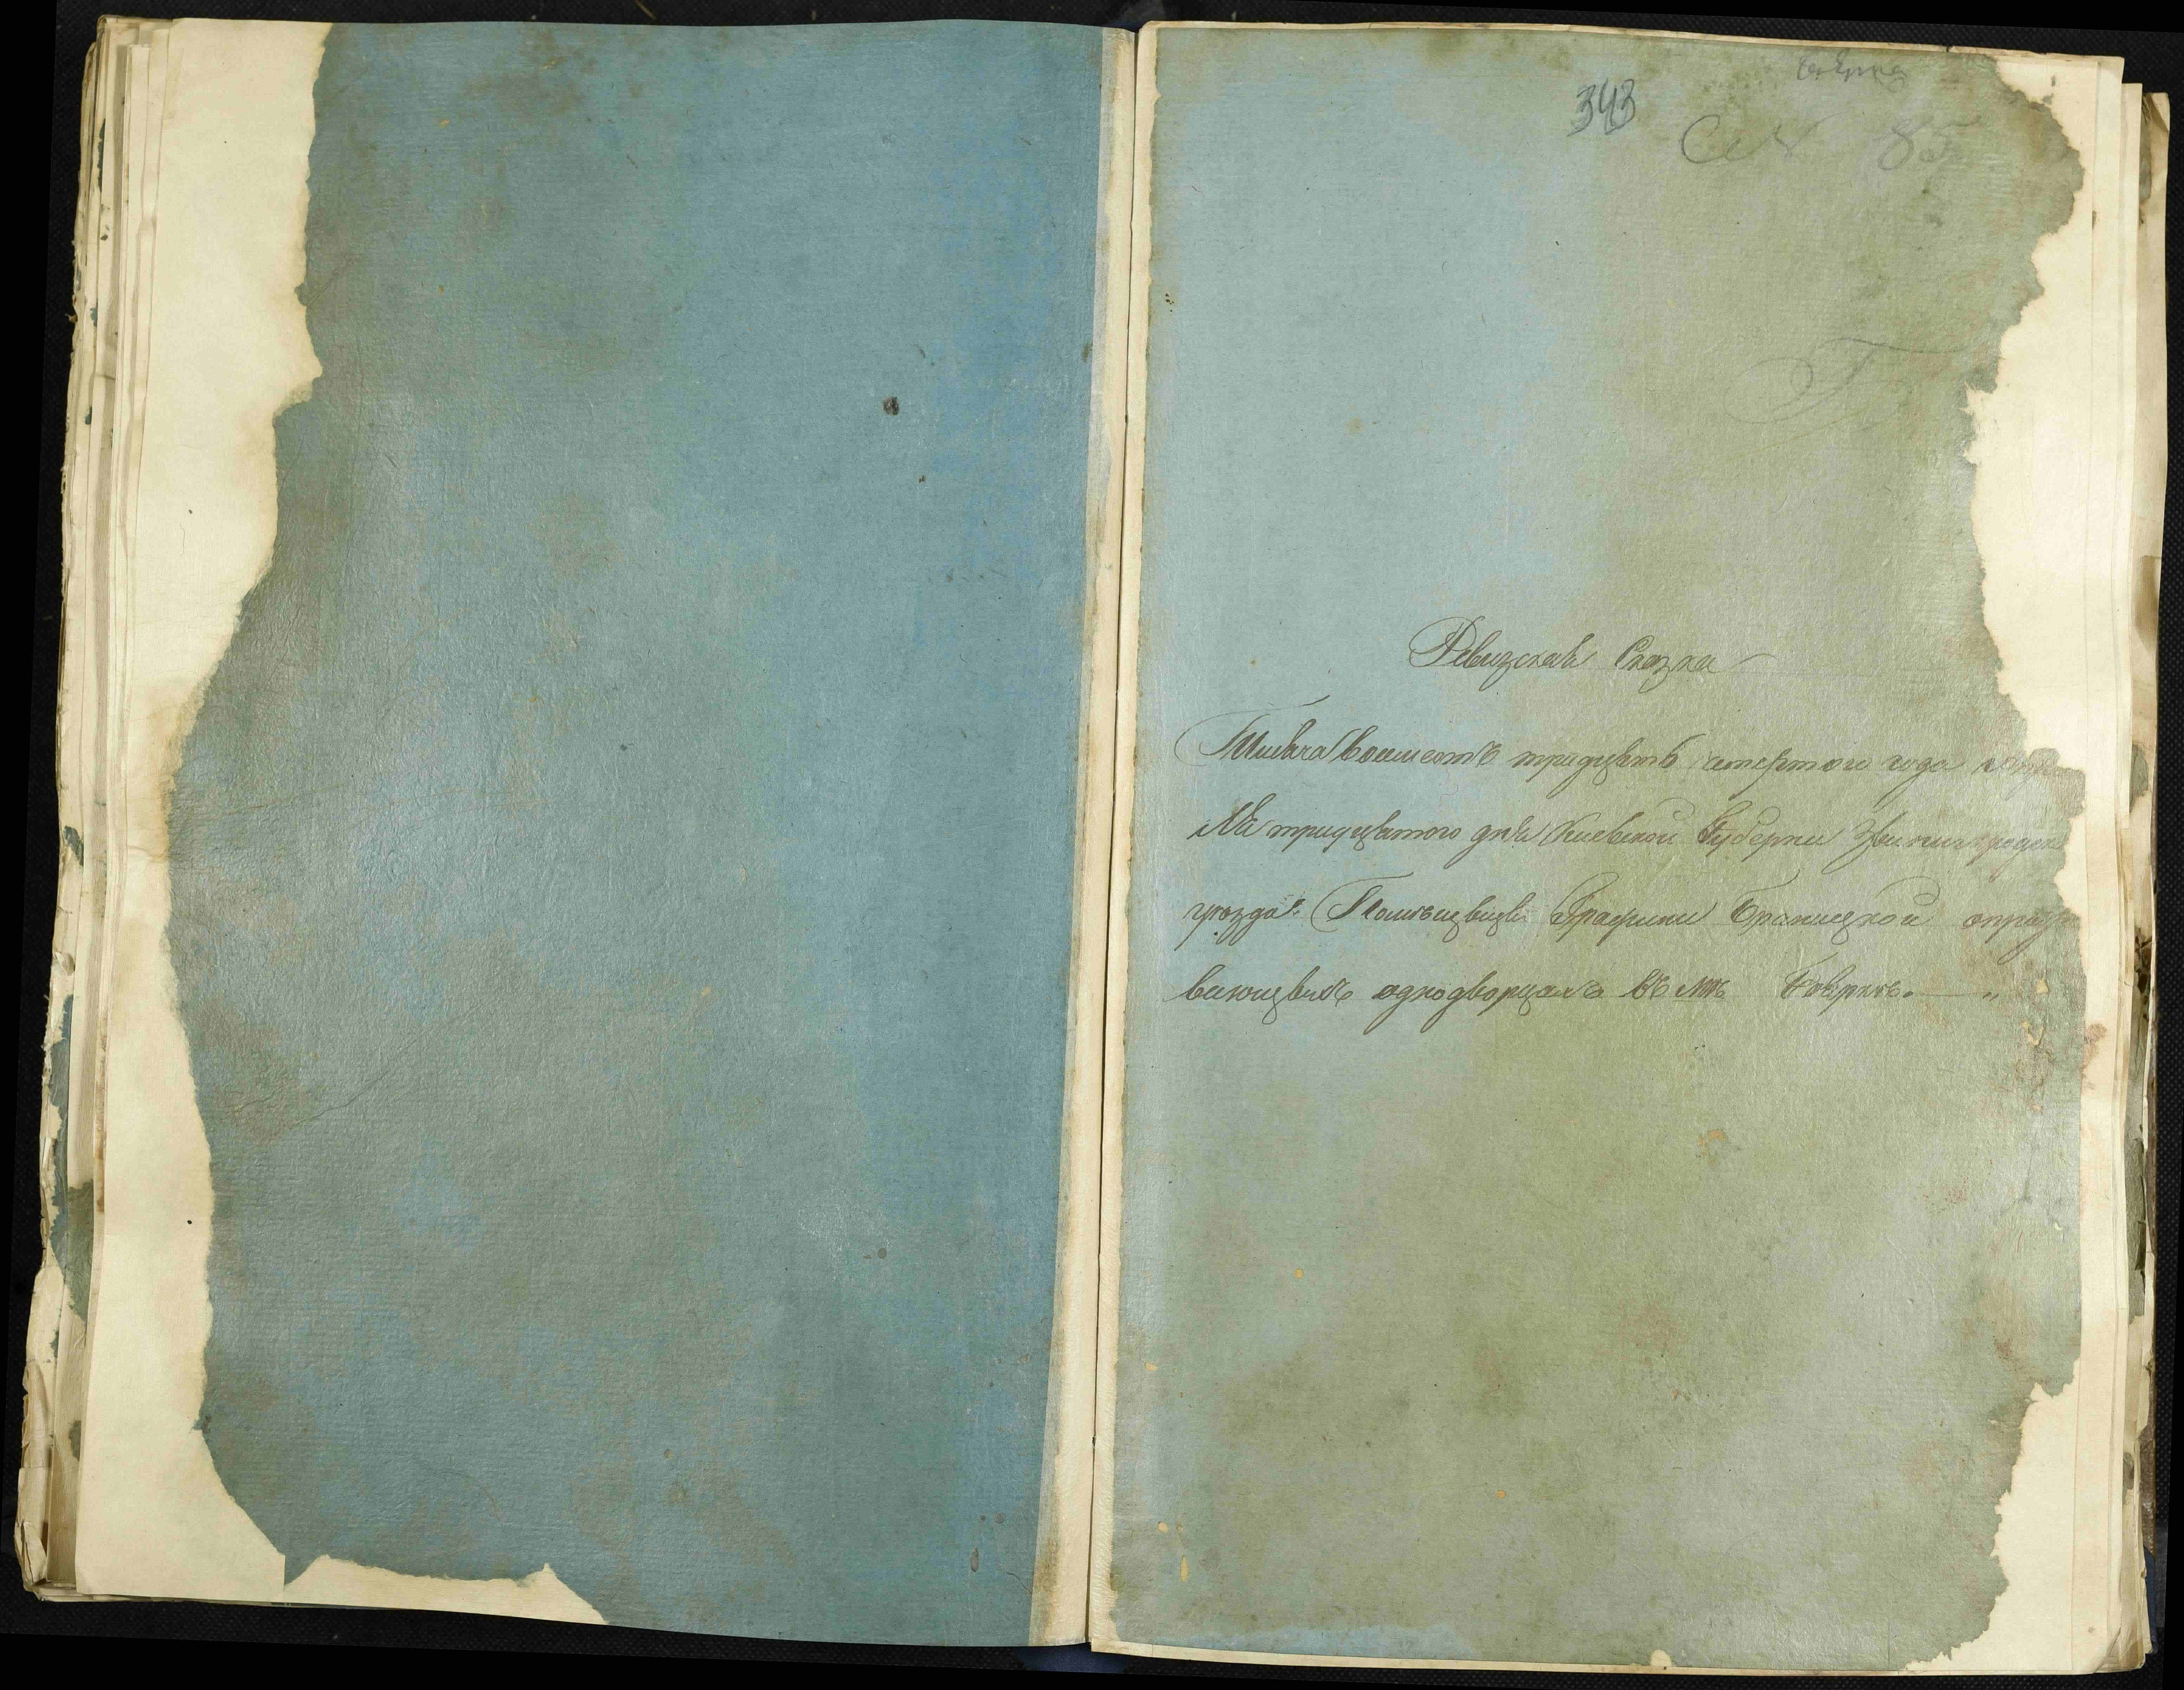 343
85
Ревизская Сказка
Тысяча восемсотъ тридцать четвертого года
Мая тридцатого дня Киевской Губерни Звенигородск
уезда: Помещицы Графини Браницкой о
вающихъ однодворцахъ въ мѣ: